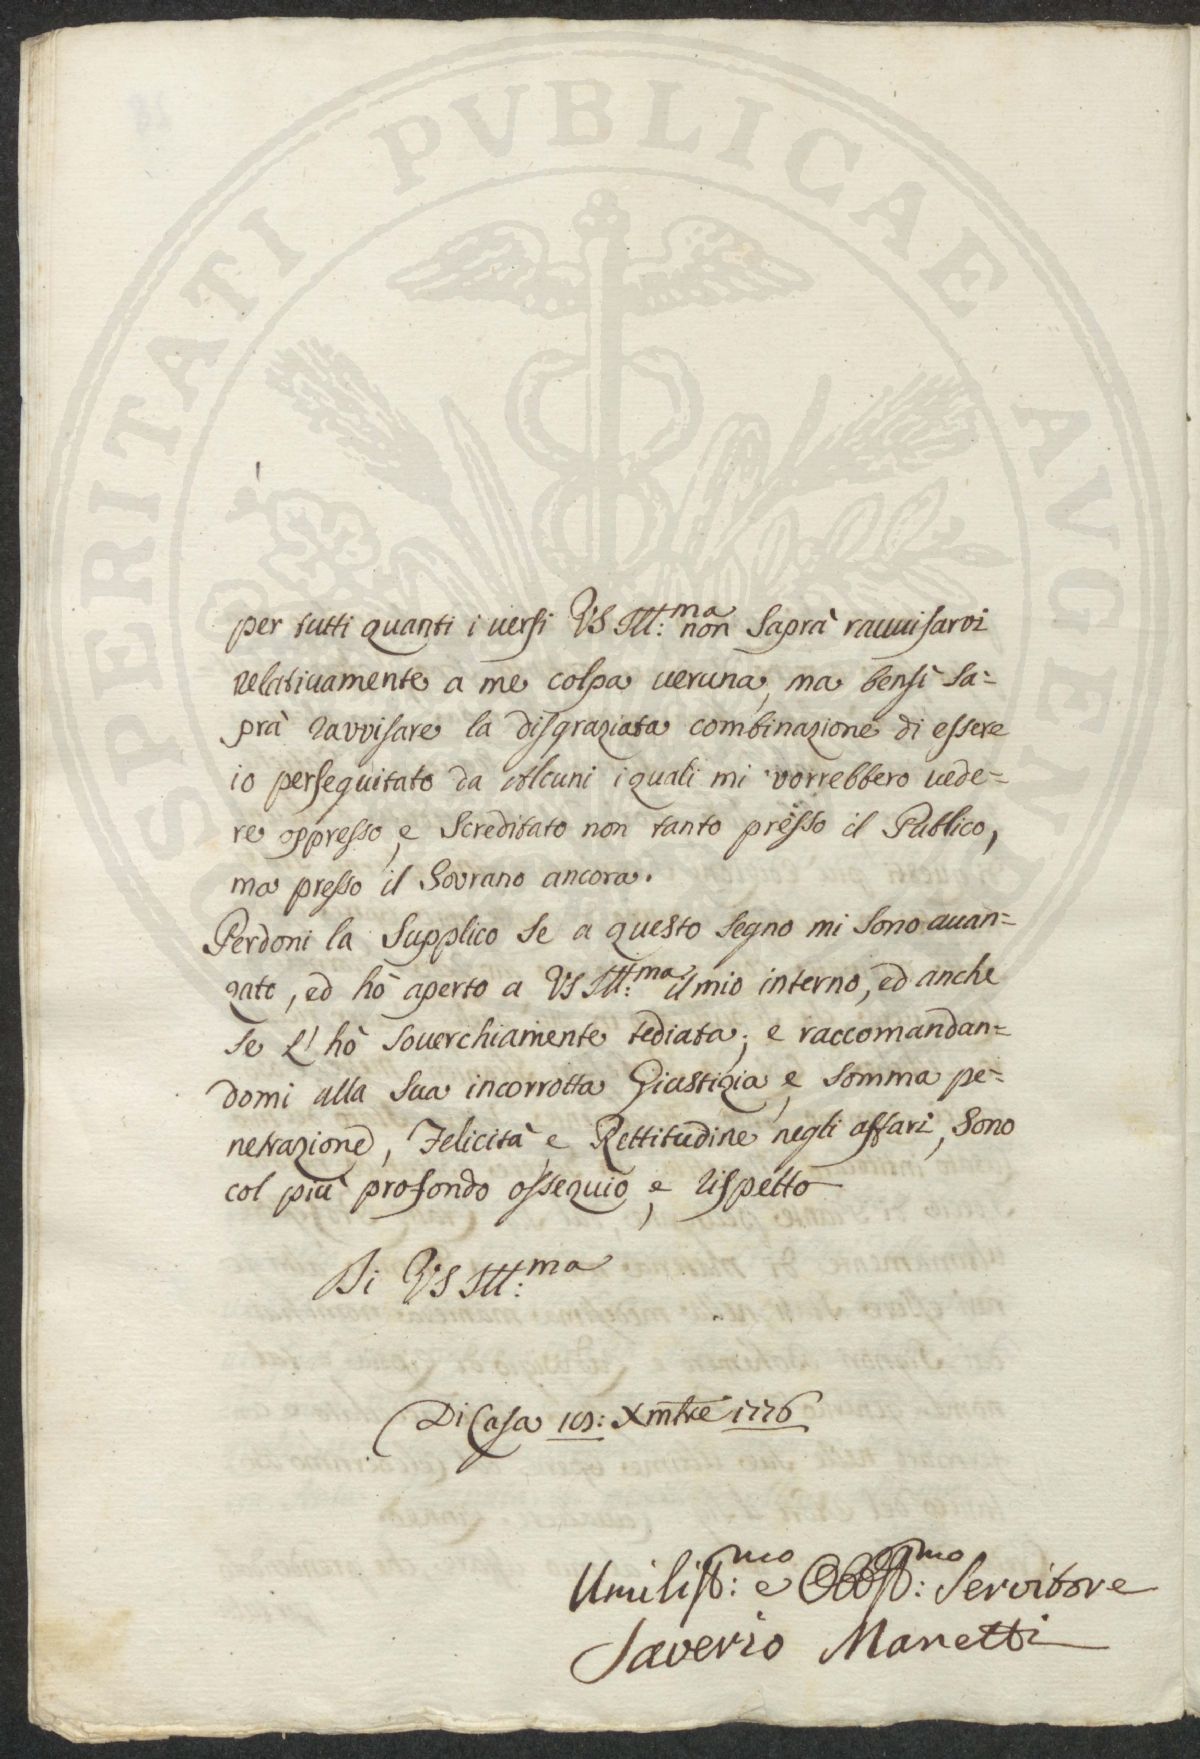 PROSPERITATI PVBLICAE AVGENDAE
per tutti quanti i versi VS Ill:ma non saprà ravvisarvi
relativamente a me colpa veruna, ma bensì sa=
prà ravvisare la disgraziata combinazione di essere
io perseguitato da alcuni i quali mi vorrebbero vede=
re oppresso, e screditato non tanto presso il Publico,
ma presso il Sovrano ancora.
Perdoni la supplico se a questo segno mi sono avan=
zato, ed hò aperto a VS Ill:ma il mio interno, ed anche
se L'hò soverchiamente tediata; e raccomandan=
domi alla sua incorrotta Giustizia, e somma pe=
netrazione, Felicità, e Rettitudine negli affari, sono
col più profondo ossequio, e rispetto
Di VS Ill:ma
Di Casa 10: Xmbre 1776
Umiliss:mo e Obblig:mo Servitore
Saverio Manetti